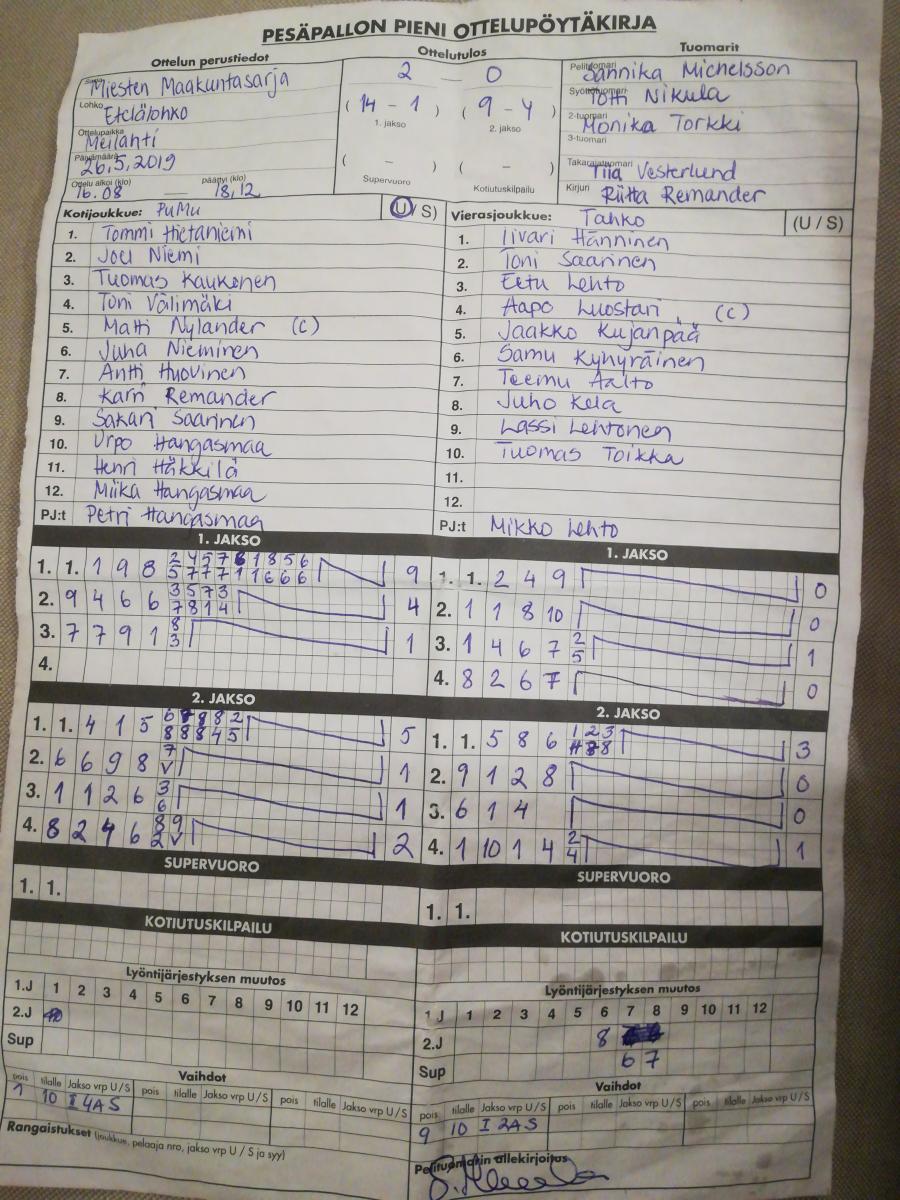 PESÄPALLON PIENI OTTELUPÖYTÄKIRJA
Ottelun perustiedot
Ottelutulos
Tuomarit
Miesten Maakuntasarja
Lohko Etelälohko
Ottelupaikka Meilahti
Päivämäärä 26.5.2019
Ottelu alkoi (klo) 16.08 päättyi (klo) 18.12
2 — 0
( 14 - 1 ) ( 9 - 4 )
1. jakso 2. jakso
( - ) ( - )
Supervuoro Kotiutuskilpailu
Pelituomari Sannika Michelsson
Syöttötuomari Totti Nikula
2-tuomari Monika Torkki
3-tuomari
Takarajatuomari Tiia Vesterlund
Kirjuri Riitta Remander
Kotijoukkue: PuMu (U / S)
1. Tommi Hietaniemi
2. Joel Niemi
3. Tuomas Kaukonen
4. Toni Välimäki
5. Matti Nylander (C)
6. Juha Nieminen
7. Antti Huovinen
8. Karri Remander
9. Sakari Saarinen
10. Urpo Hangasmaa
11. Henri Häkkilä
12. Miika Hangasmaa
PJ:t Petri Hangasmaa
Vierasjoukkue: Tahko (U / S)
1. Iivari Hänninen
2. Toni Saarinen
3. Eetu Lehto
4. Aapo Luostari (C)
5. Jaakko Kujanpää
6. Samu Kyhyräinen
7. Teemu Aalto
8. Juho Kela
9. Lassi Lehtonen
10. Tuomas Toikka
11.
12.
PJ:t Mikko Lehto
1. JAKSO
1. 1. 1 9 8 2 4 5 7 6 1 8 5 6 9
5 7 7 7 1 1 6 6 6
2. 9 4 6 6 3 5 7 3 4
7 8 1 4
3. 7 7 9 1 8 1
3
4.
2. JAKSO
1. 1. 4 1 5 6 8 8 2 5
8 8 8 4 5
2. 6 6 9 8 7 1
V
3. 1 1 2 6 3 1
6
4. 8 2 4 6 8 9 2
2 V
SUPERVUORO
1. 1.
KOTIUTUSKILPAILU
Lyöntijärjestyksen muutos
1.J 1 2 3 4 5 6 7 8 9 10 11 12
2.J
Sup
Vaihdot
pois tilalle Jakso vrp U/S pois tilalle Jakso vrp U/S pois tilalle Jakso vrp U/S
1 10 I 4A S
Rangaistukset (joukkue, pelaaja nro, jakso vrp U / S ja syy)
1. JAKSO
1. 1. 2 4 9 0
2. 1 1 8 10 0
3. 1 4 6 7 2 1
5
4. 8 2 6 7 0
2. JAKSO
1. 1. 5 8 6 1 2 3 3
8
2. 9 1 2 8 0
3. 6 1 4 0
4. 1 10 1 4 2 1
4
SUPERVUORO
1. 1.
KOTIUTUSKILPAILU
Lyöntijärjestyksen muutos
1 J 1 2 3 4 5 6 7 8 9 10 11 12
2.J 8
Sup 6 7
Vaihdot
pois tilalle Jakso vrp U/S pois tilalle Jakso vrp U/S pois tilalle Jakso vrp U/S
9 10 I 2A S
Pelituomarin allekirjoitus